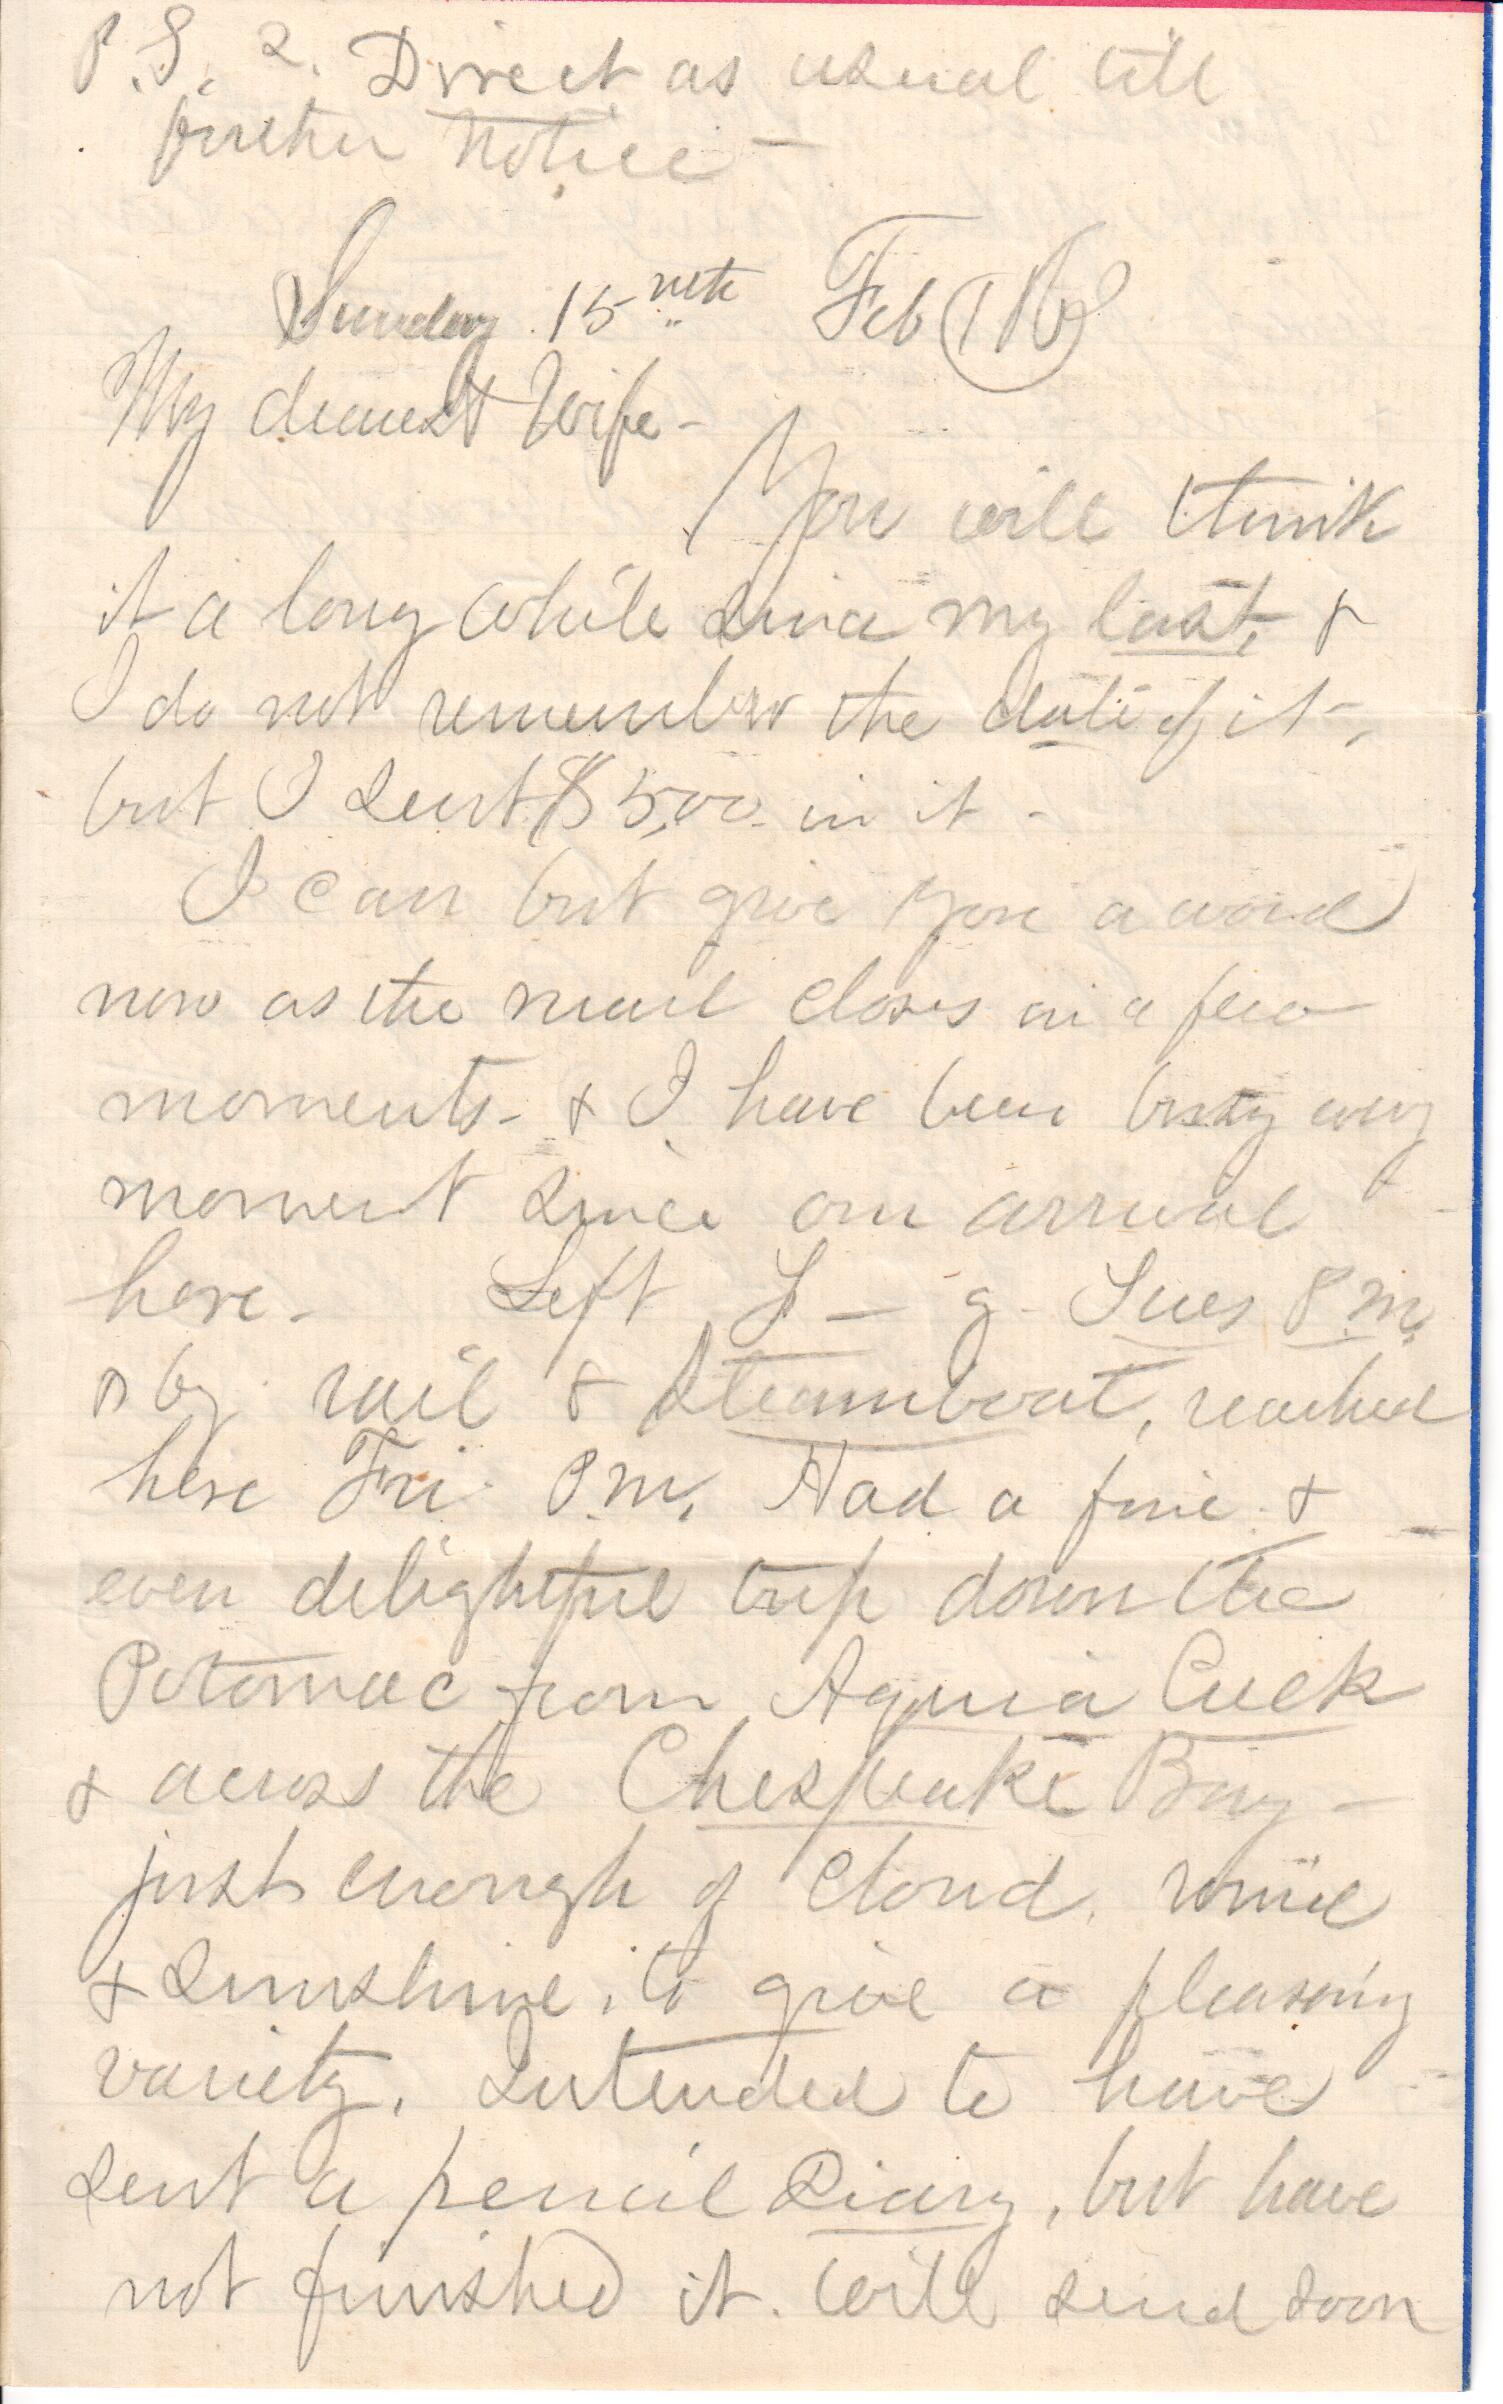 P.S. 2. Direct as usual till
further notice -
Sunday 15 Feb
My dearest Wife -
You will think
it a long while since my last, &
I do not remember the date of it -,
but I sent $5,00 in it -
I can but give you a word
now as the mail closes in a few
moments - & I have been busy every
moment since our arrival
here - Left Tues P.M.
& by rail & Steamboat, reached
here Fri P.M. Had a fine &
even delightful trip down the
Potomac from Aquia Creek
& across the Chespeake Bay -
just enough of cloud,
& sunshine, to give a pleasing
variety. Intended to have
sent a pencil Diary, but have
not finished it. Will send soon